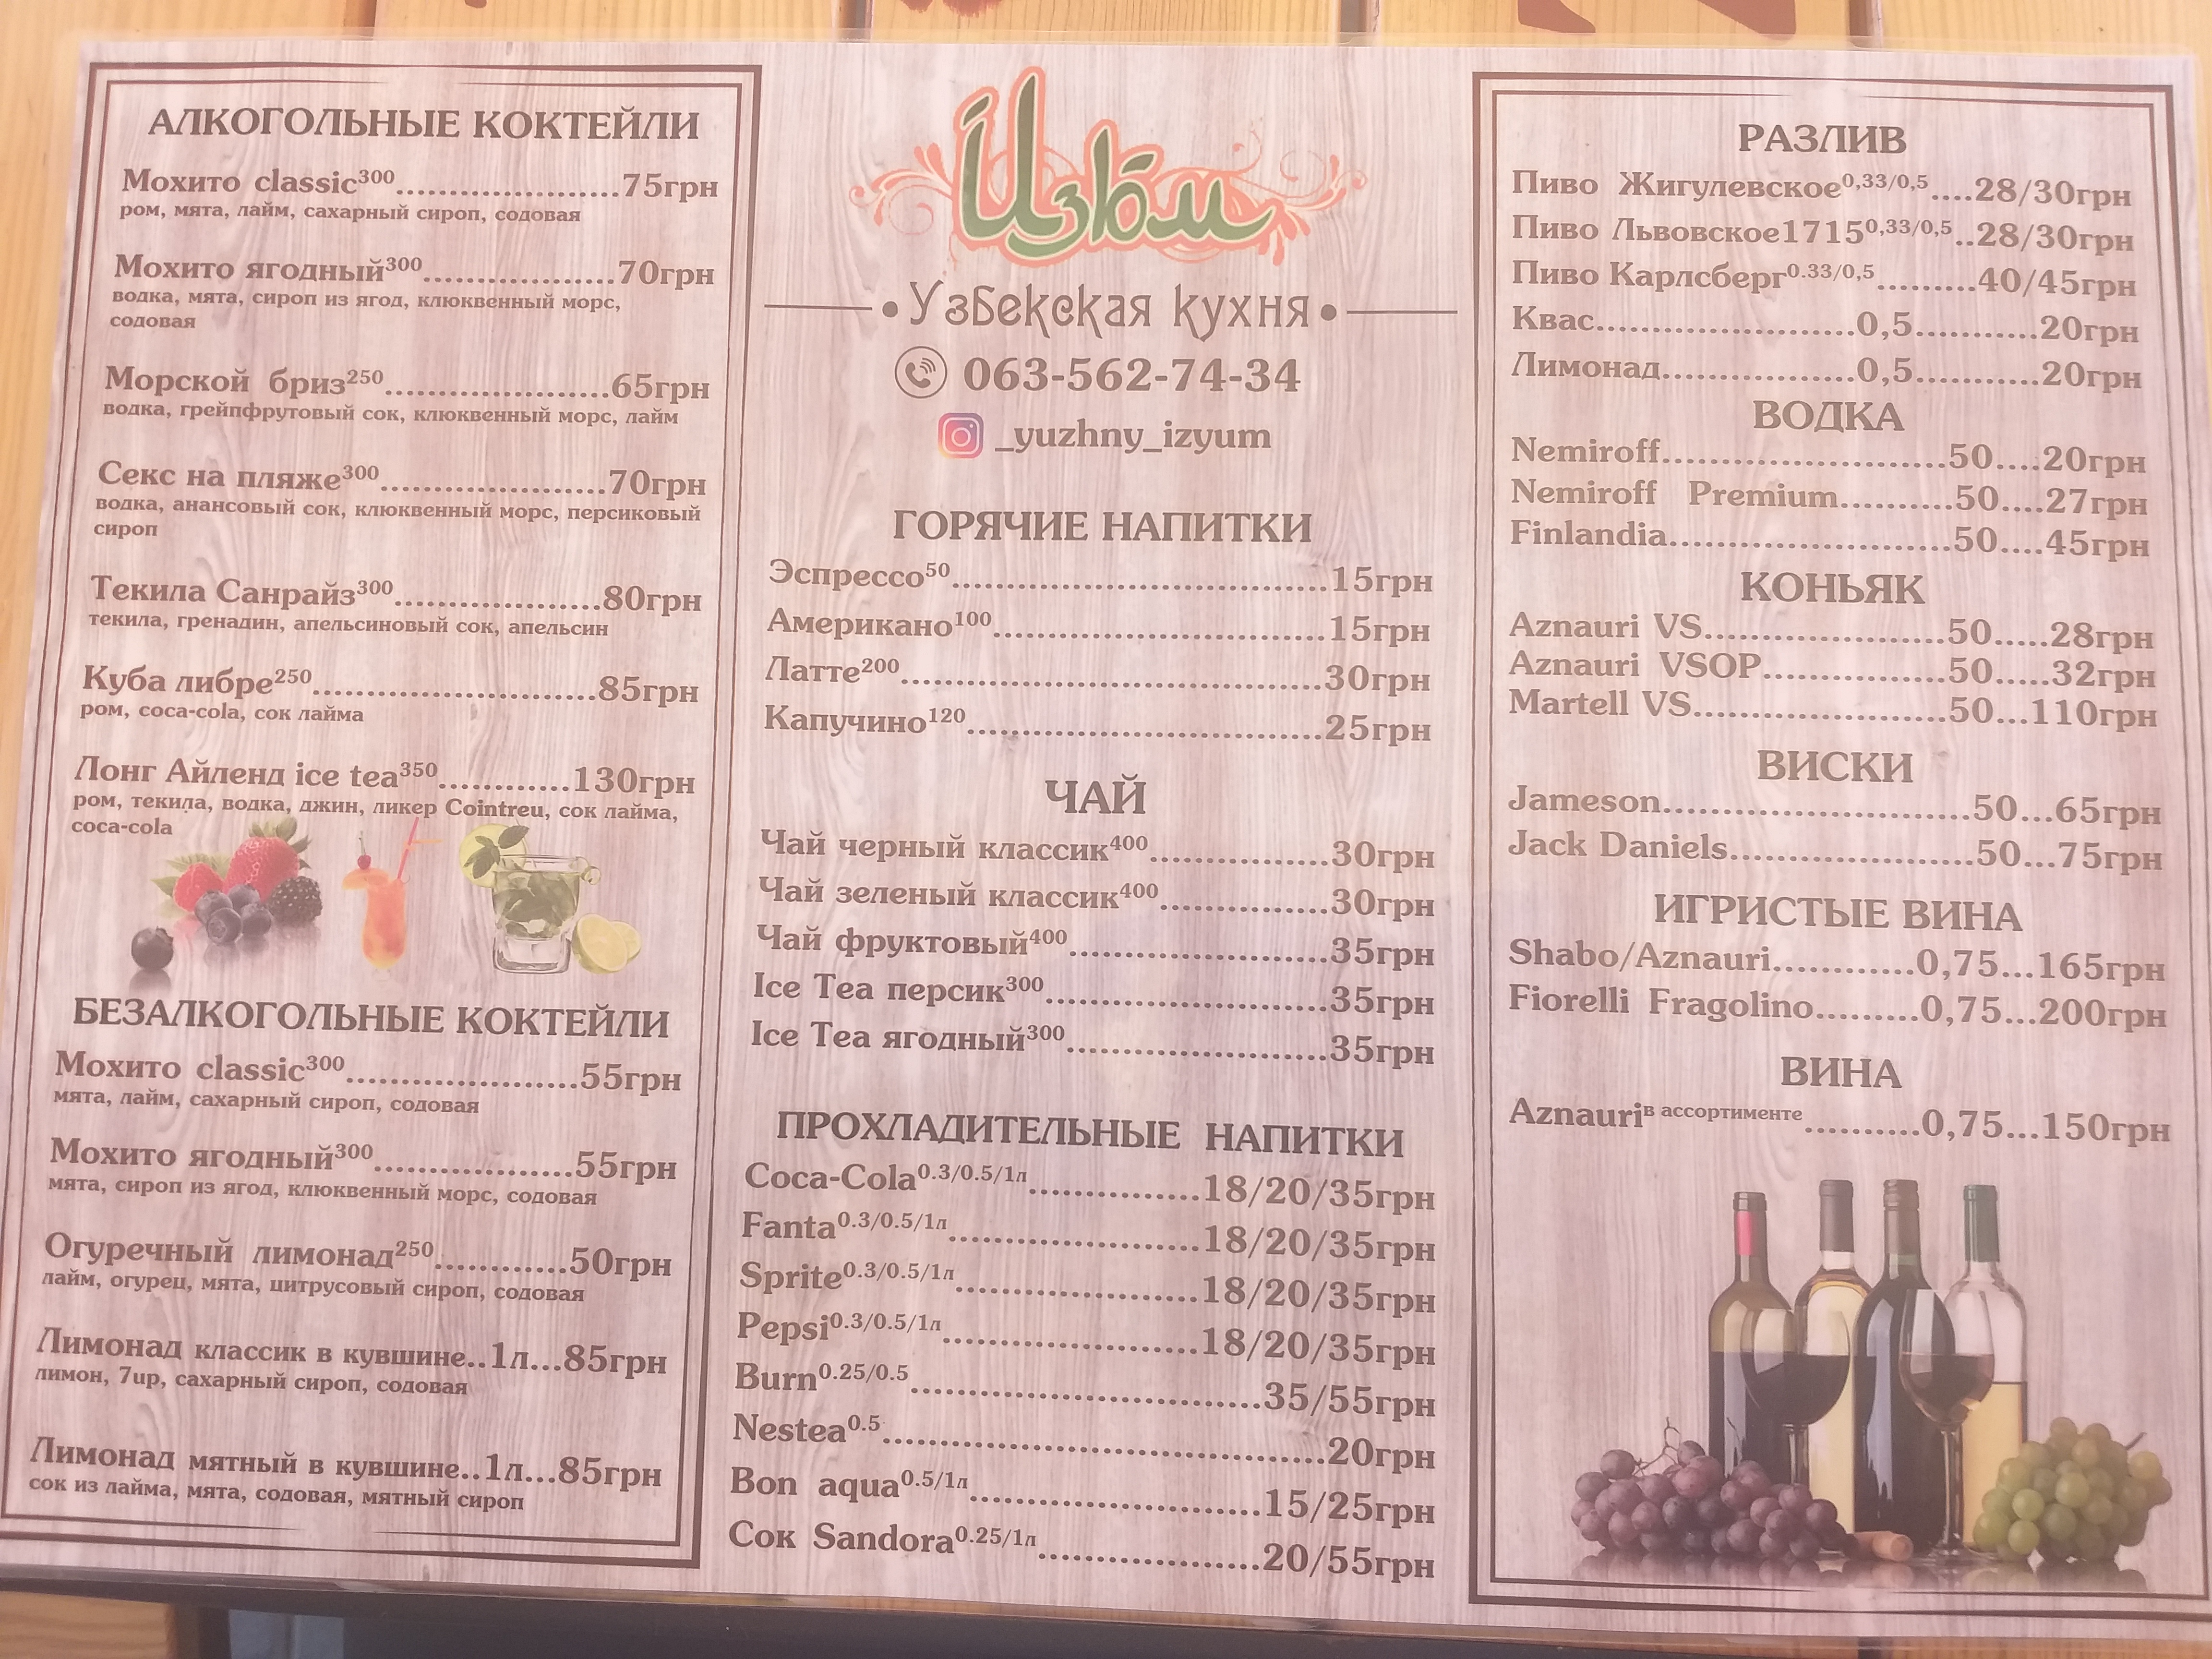 АЛКОГОЛЬНЫЕ КОКТЕЙЛИ
Мохито classic300......................75грн
ром, мята, лайм, сахарный сироп, содовая
Мохито ягодный300...................70грн
водка, мята, сироп из ягод, клюквенный морс,
содовая
Морской бриз250......................65грн
водка, грейпфрутовый сок, клюквенный морс, лайм
Секс на пляже300......................70грн
водка, анансовый сок, клюквенный морс, персиковый
сироп
Текила Санрайз300....................80грн
текила, гренадин, апельсиновый сок, апельсин
Куба либре250............................85грн
ром, coca-cola, сок лайма
Лонг Айленд ice tea350.............130грн
ром, текила, водка, джин, ликер Cointreu, сок лайма,
coca-cola
БЕЗАЛКОГОЛЬНЫЕ КОКТЕЙЛИ
Мохито classic300.......................55грн
мята, лайм, сахарный сироп, содовая
Мохито ягодный300....................55грн
мята, сироп из ягод, клюквенный морс, содовая
Огуречный лимонад250.............50грн
лайм, огурец, мята, цитрусовый сироп, содовая
Лимонад классик в кувшине..1л...85грн
лимон, 7up, сахарный сироп, содовая
Лимонад мятный в кувшине..1л...85грн
сок из лайма, мята, содовая, мятный сироп
Изюм
Узбекская кухня
063-562-74-34
_yuzhny_izyum
ГОРЯЧИЕ НАПИТКИ
Эспрессо50.....................................15грн
Американо100.................................15грн
Латте200..........................................30грн
Капучино120...................................25грн
ЧАЙ
Чай черный классик400..................30грн
Чай зеленый классик400.................30грн
Чай фруктовый400..........................35грн
Ice Tea персик300............................35грн
Ice Tea ягодный300..........................35грн
ПРОХЛАДИТЕЛЬНЫЕ НАПИТКИ
Coca-Cola0.3/0.5/1л.................18/20/35грн
Fanta0.3/0.5/1л.........................18/20/35грн
Sprite0.3/0.5/1л........................18/20/35грн
Pepsi0.3/0.5/1л.........................18/20/35грн
Burn0.25/0.5...................................35/55грн
Nestea0.5...........................................20грн
Bon aqua0.5/1л.............................15/25грн
Сок Sandora0.25/1л......................20/55грн
РАЗЛИВ
Пиво Жигулевское0,33/0,5....28/30грн
Пиво Львовское17150,33/0,5..28/30грн
Пиво Карлсберг0.33/0,5.........40/45грн
Квас.......................0,5...........20грн
Лимонад.................0,5...........20грн
ВОДКА
Nemiroff..........................50....20грн
Nemiroff Premium..........50....27грн
Finlandia.........................50....45грн
КОНЬЯК
Aznauri VS......................50.....28грн
Aznauri VSOP.................50.....32грн
Martell VS.......................50...110грн
ВИСКИ
Jameson............................50...65грн
Jack Daniels......................50...75грн
ИГРИСТЫЕ ВИНА
Shabo/Aznauri.............0,75...165грн
Fiorelli Fragolino.........0,75...200грн
ВИНА
Aznauriв ассортименте..........0,75...150грн